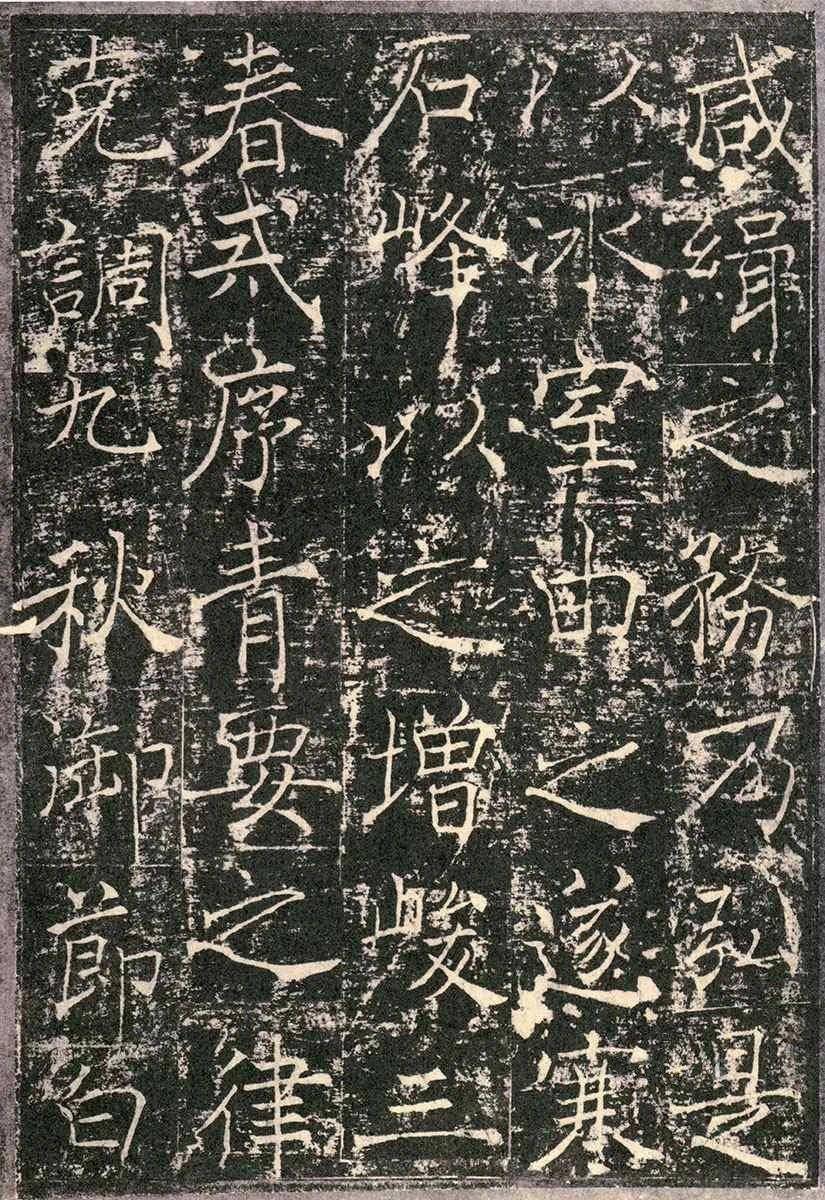 咸緝之務乃弘是
以冰室由之遂寒
石峰以之增峻三
春序青要之律
克調九秋御節白